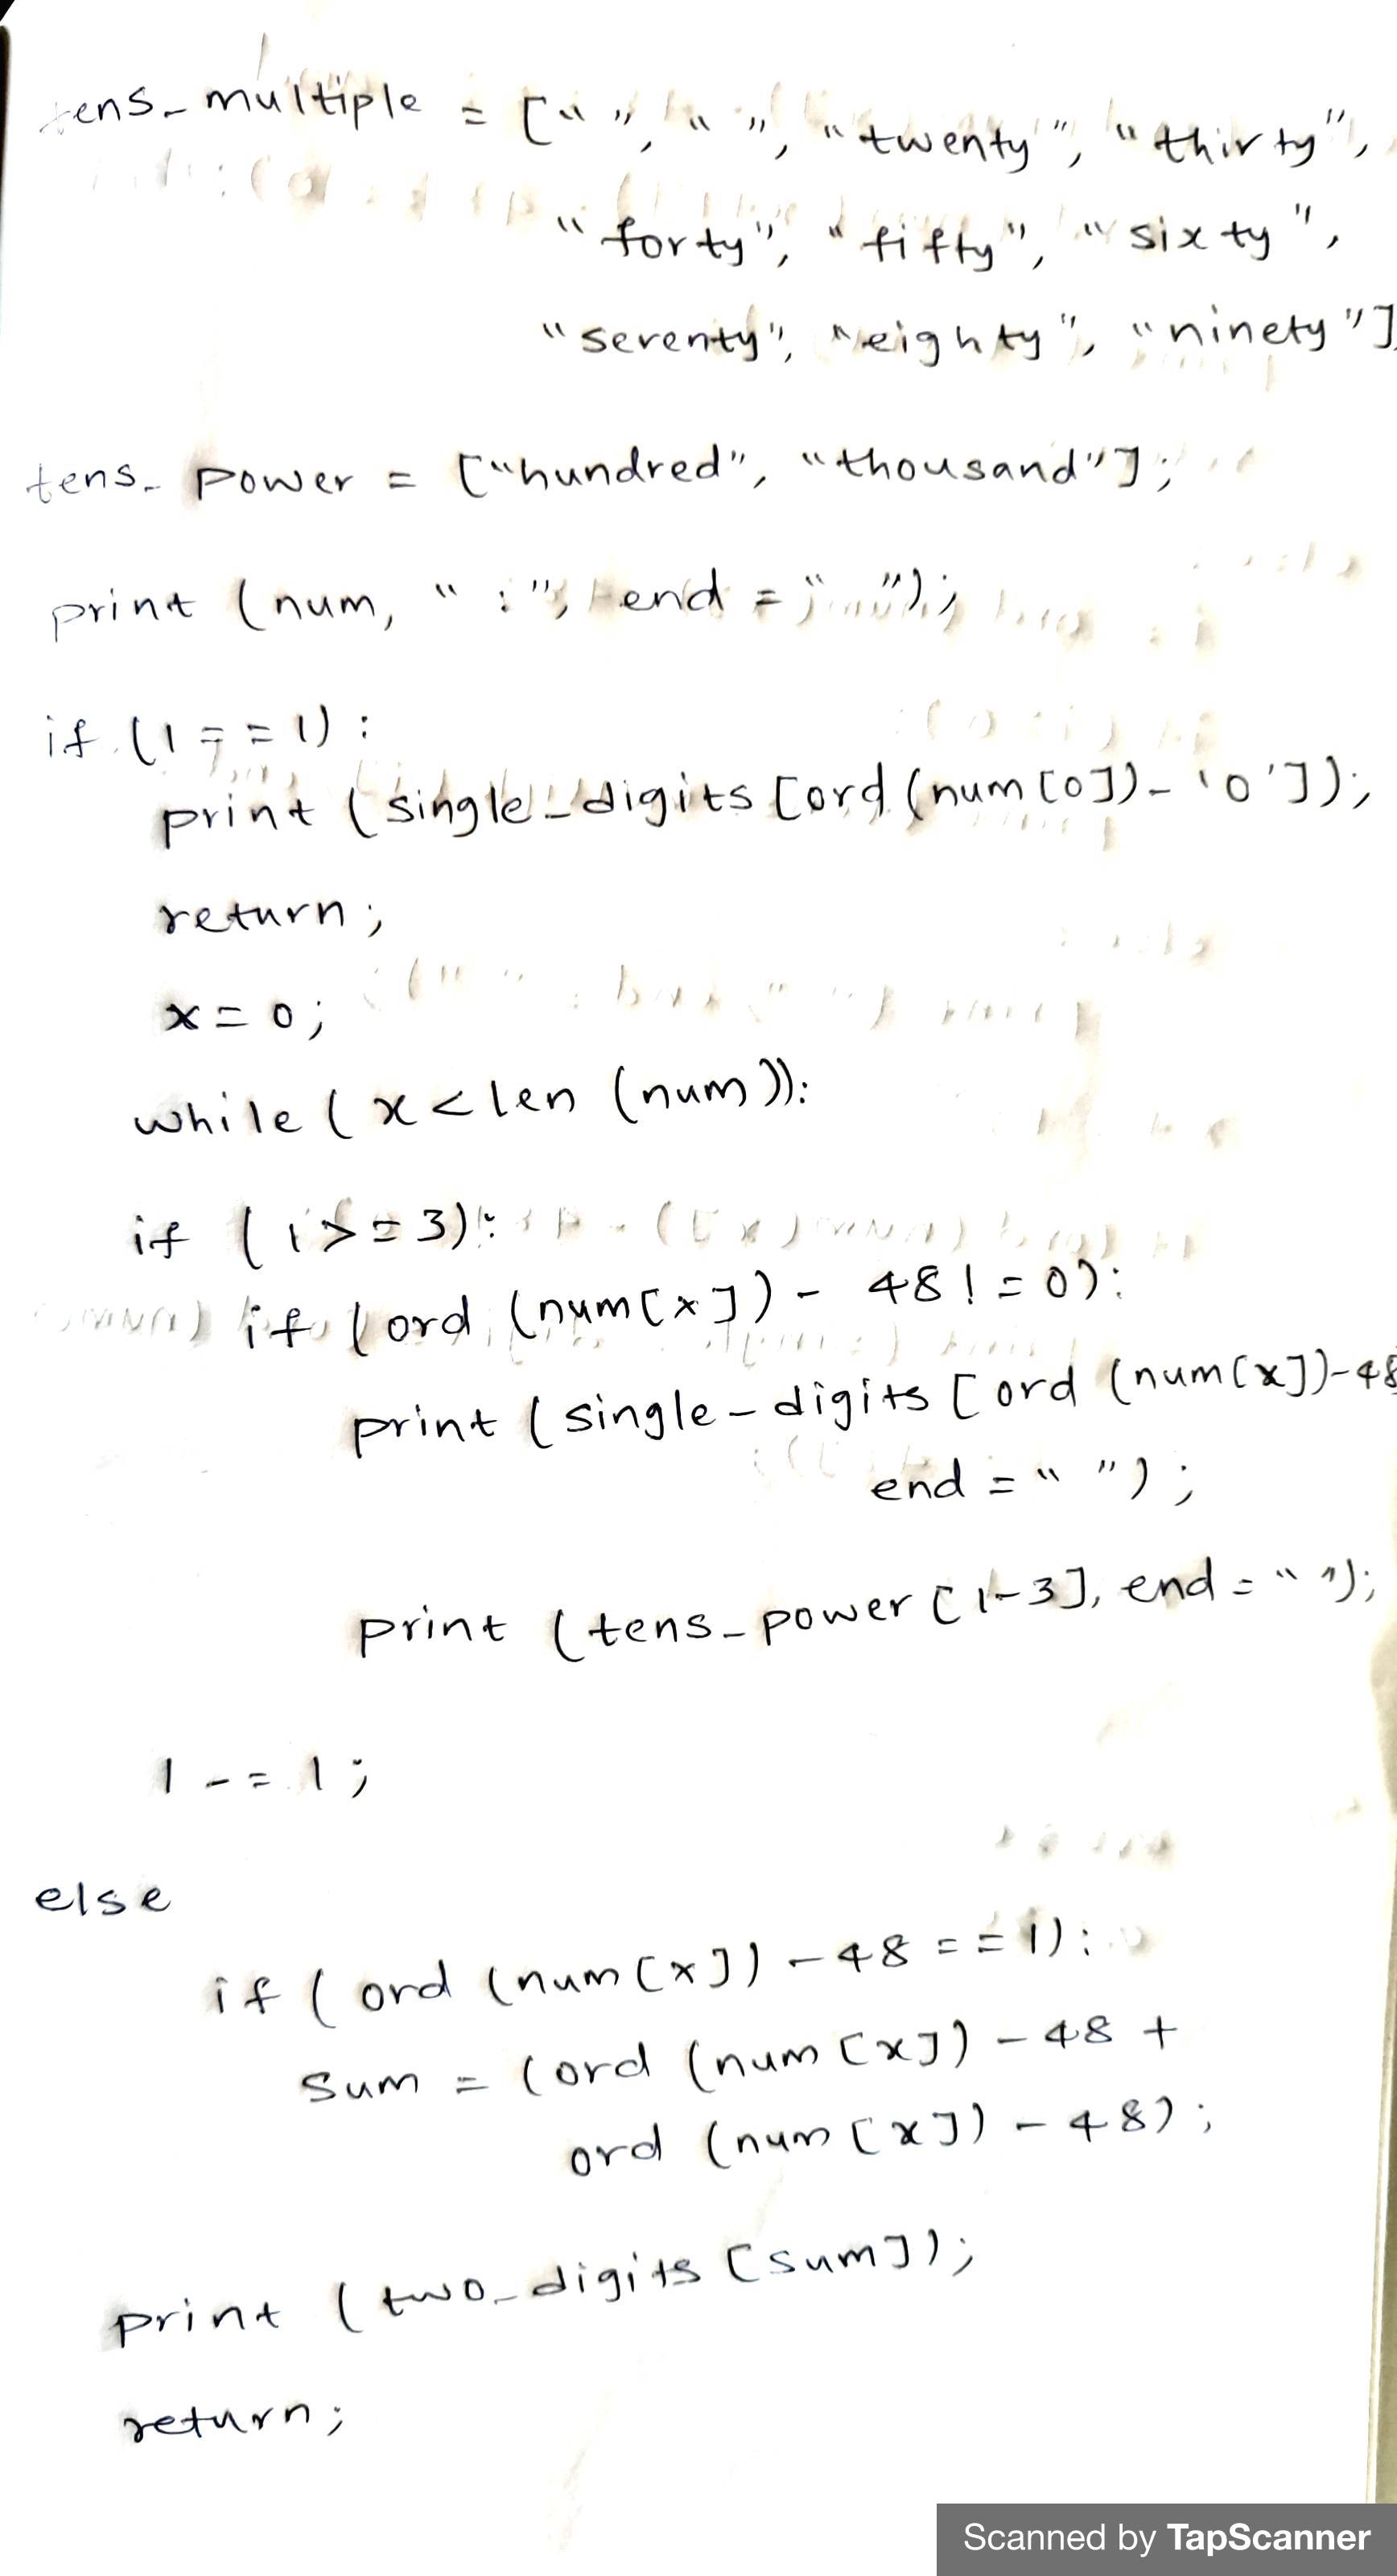 tens_multiple = [" ", " ", "twenty", "thirty",
"forty", "fifty", "sixty",
"serenty", "eighty", "ninety"]
tens_power = ["hundred", "thousand"];
print (num, " :", end = " ");
if (1 == 1):
print (single_digits [ord (num[0]) - '0']);
return;
x = 0;
while (x < len (num)):
if (1 >= 3):
if (ord (num[x]) - 48 != 0):
print (single_digits [ord (num[x])-48
end = " ");
print (tens_power [1-3], end = " ");
1 -= 1;
else
if (ord (num[x]) - 48 == 1):
sum = (ord (num[x]) - 48 +
ord (num[x]) - 48);
print (two_digits [sum]);
return;
Scanned by TapScanner